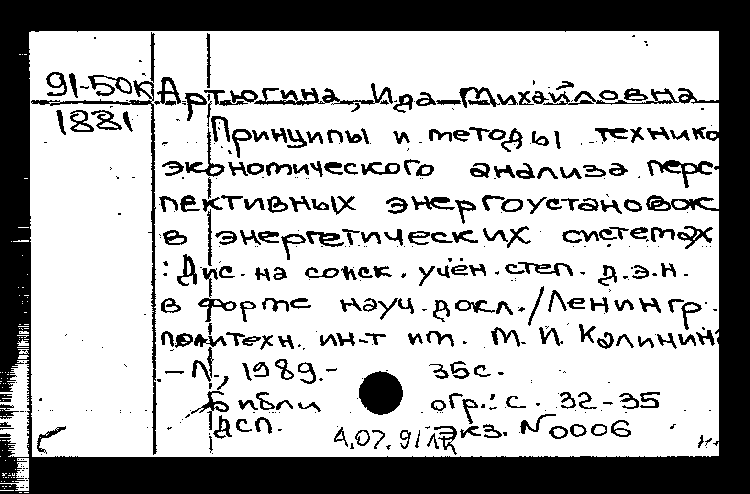 91-50к Артюгина, Ида Михайловна
1881
Принципы и методы технико
экономического анализа перс-
пективных энергоустановок
в энергетических системах
: Дис. на соиск. учён. степ. д.э.н.
в форме науч. докл. / Ленингр.
политехн. ин-т им. М. И. Калинина
– Л., 1989. – 35с.
Библи огр.: с. 32-35
ДСП. экз. №0006
4.07.91